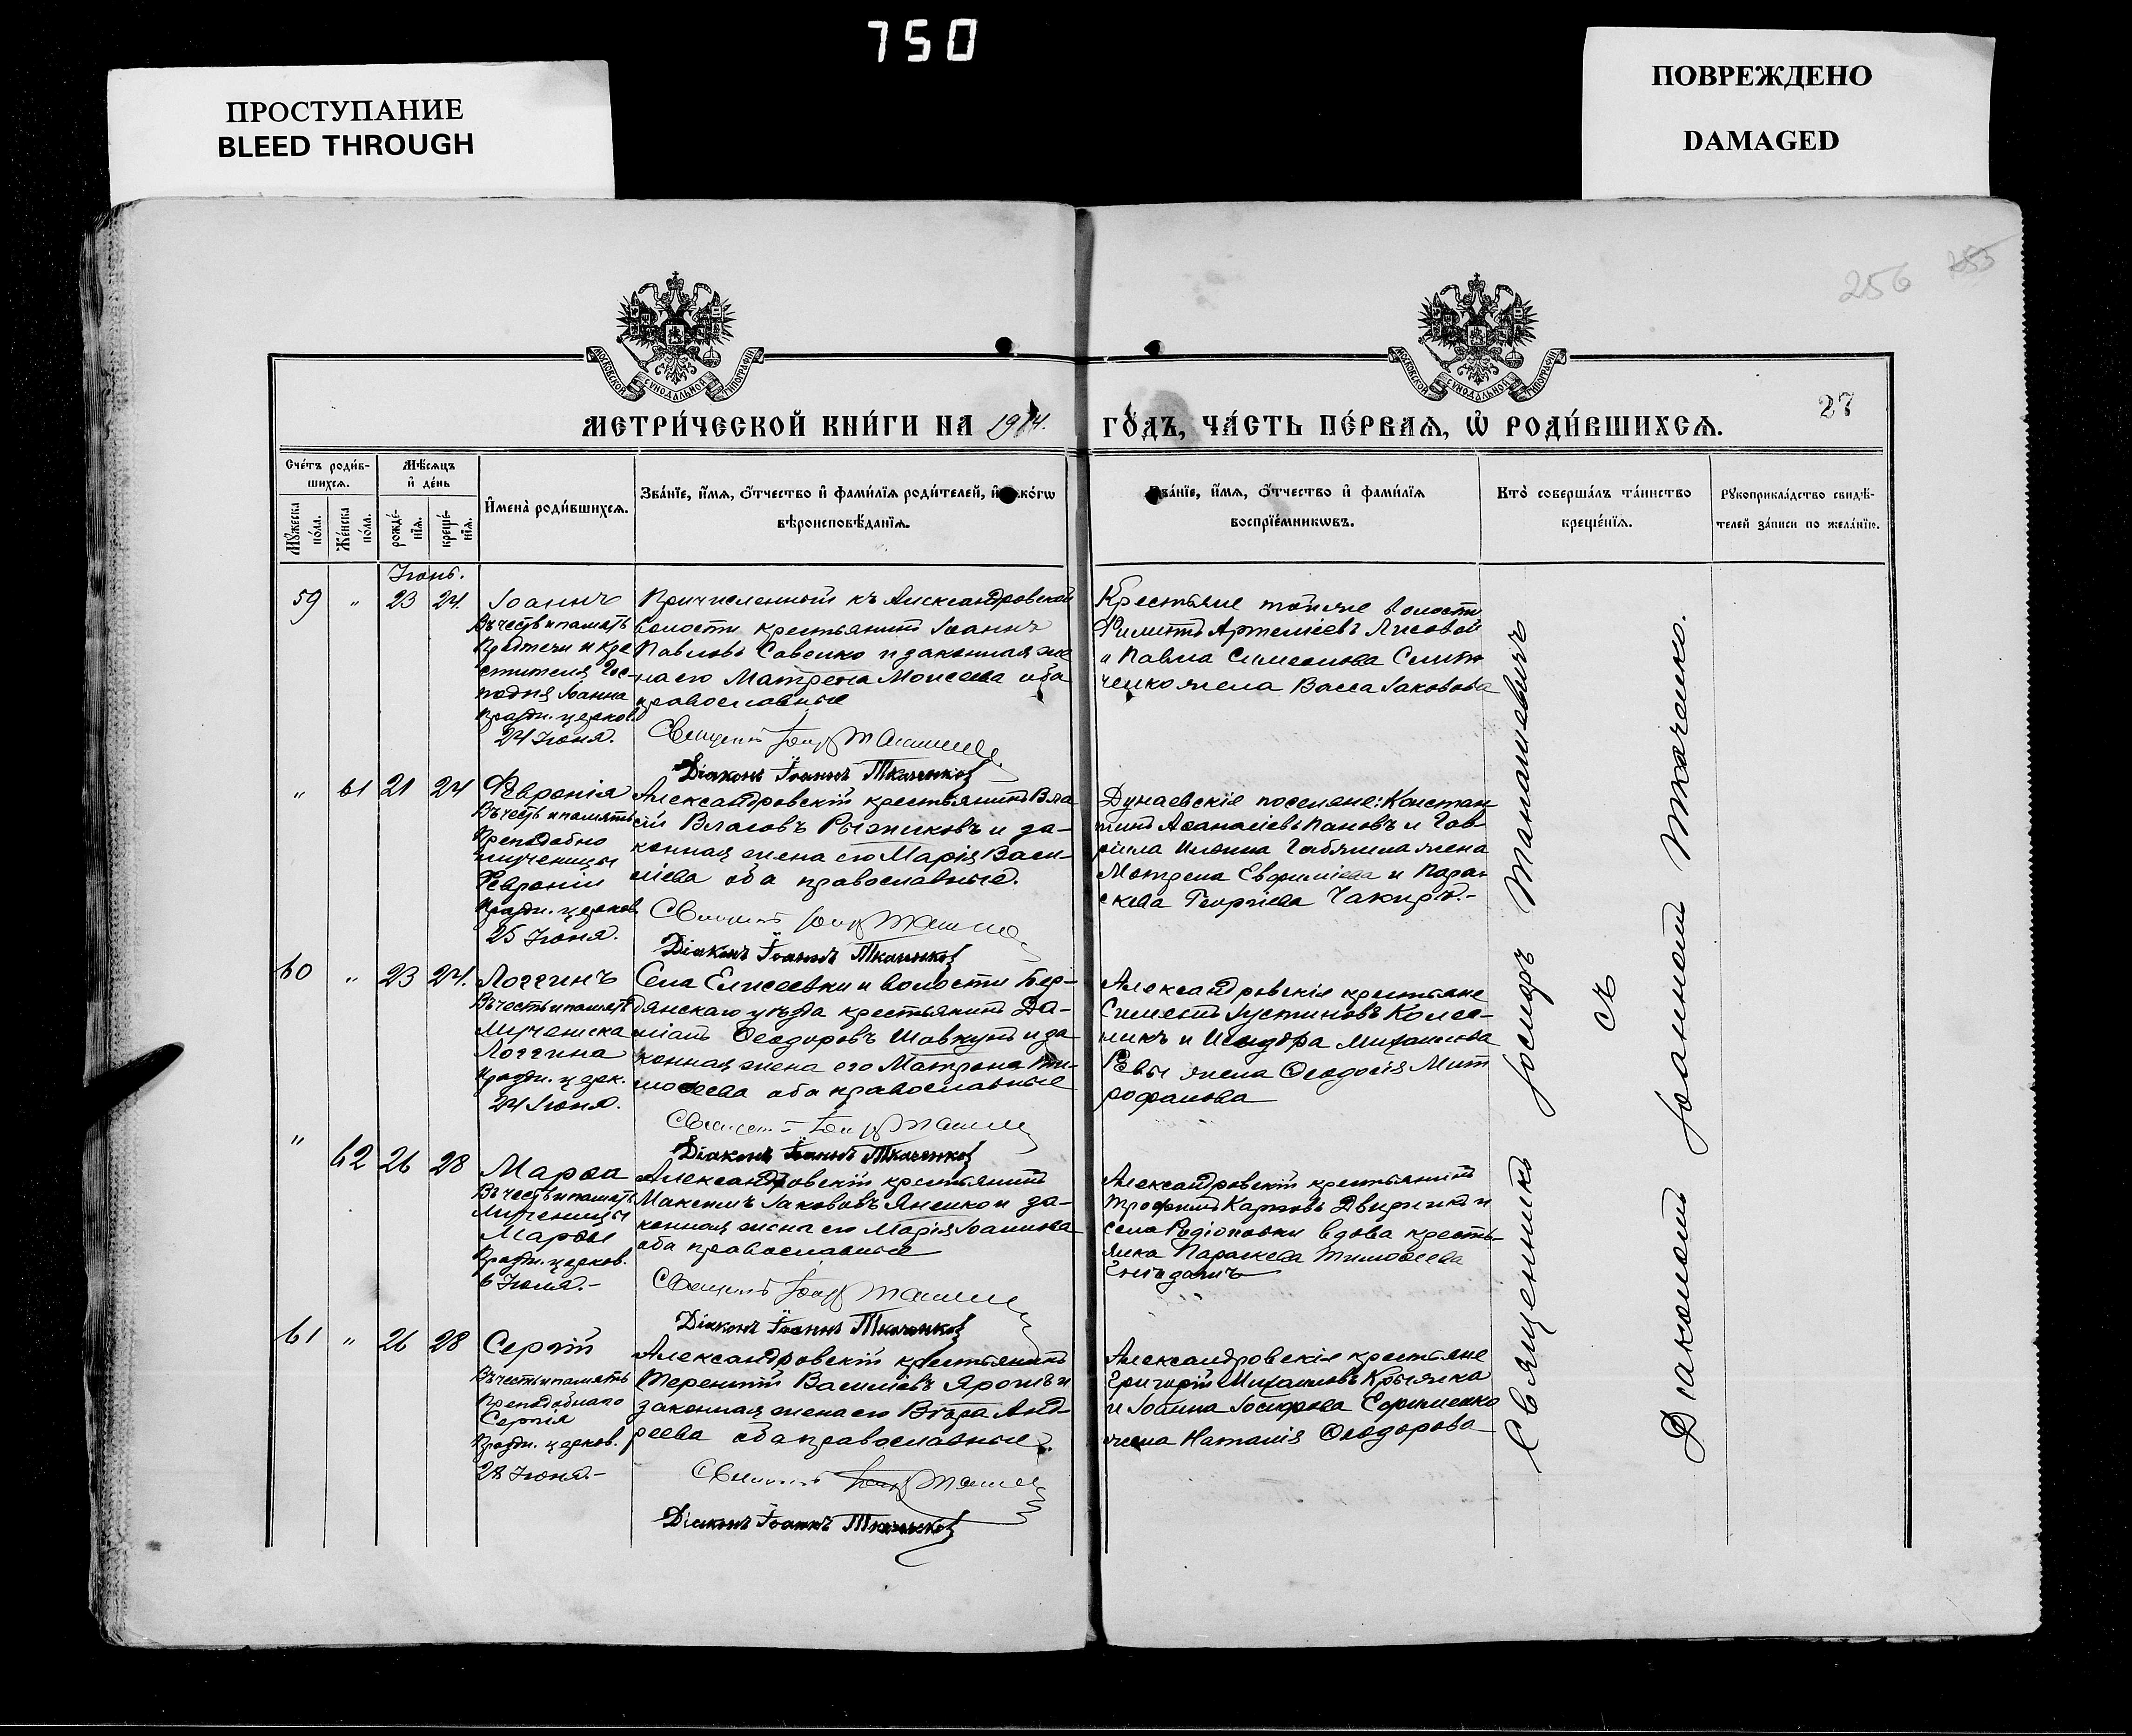 750
ПРОСТУПАНИЕ
BLEED THROUGH
ПОВРЕЖДЕНО
DAMAGED
256 255
МОСКОВСКОЙ СУНОДАЛЬНОЙ ТИПОГРАФІИ
МОСКОВСКОЙ СУНОДАЛЬНОЙ ТИПОГРАФІИ
27
МЕТРИ́ЧЕСКОЙ КНИ́ГИ НА 1914. ГО́ДЪ, ЧА́СТЬ ПЕ́РВАѦ, Ѡ҆ РОДИ́ВШИХСѦ.
Сче́тъ роди́в-
шихсѧ.
Мꙋ́жеска по́ла.
Же́нска по́ла.
Мѣ́сѧцъ
и҆ де́нь
рожде́-
нїѧ.
креще́-
нїѧ.
И҆мена̀ роди́вшихсѧ.
Зва́нїе, и҆́мѧ, ѻ҆́тчество и҆ фами́лїѧ роди́телей, и҆ како́гѡ
вѣроисповѣ́данїѧ.
Зва́нїе, и҆́мѧ, ѻ҆́тчество и҆ фами́лїѧ
воспрїе́мникѡвъ.
Кто̀ соверша́лъ та́инство
креще́нїѧ.
Рꙋкоприкла́дство свидѣ́-
телей за́писи по жела́нїю.
Іюнь.
59 " 23 24.
Іоаннъ
Въ честь и память
Предтечи и Кре
стителя Гос-
подня Іоанна
Праздн. церков.
24 Іюня.
Причисленный къ Александровской
волости крестьянинъ Іоаннъ
Павловъ Савенко и законная же
на его Матрона Моисеева оба
православные
Діаконъ Іоаннъ Ткаченко
Крестьяне тойже волости
Филиппъ Артеміевъ Лисовой
и Павла Симеонова
жена Васса Іаковова
" 61 21 24
Февронія
Въ честь и память
Преподобно
мученицы
Февроніи
Праздн. церков
25 Іюня.
Александровскій крестьянинъ Вла
сій Власовъ Рыжиковъ и за-
конная жена его Марія Васи-
ліева оба православные.
Діаконъ Іоаннъ Ткаченко
Дунаевскіе поселяне: Констан
тинъ Аѳанасіевъ Пановъ и Гав-
риила жена
Матрена Евфиміева и Парас
кева Георгіева
60 " 23 24.
Логгинъ
Въ честь и память
Мученика
Логгина
Праздн. церк.
24 Іюня.
Села Елисеевки и волости Бер-
дянскаго уѣзда крестьянинъ Да-
міанъ Ѳеодоровъ Шовкунъ и за
конная жена его Матрона Ти-
моѳеева оба православные
Діаконъ Іоаннъ Ткаченко
Александровскіе крестьяне
Симеонъ Іустиновъ Колес-
никъ и Исидора Михаилова
Ревы жена Ѳеодосія Мит
рофанова
" 62 26 28
Марѳа
Въ честь и память
Мученицы
Марѳы
Праздн. церков.
6 Іюля.-
Александровскій крестьянинъ
Максимъ Іакововъ Яненко и за-
конная жена его Марія Іоаннова
оба православные
Діаконъ Іоаннъ Ткаченко
Александровскій крестьянинъ
Трофимъ Карповъ и
села Родіоновки вдова кресть-
янка Параскева Тимоѳеева
61 " 26 28
Сергій
Въ честь и память
Преподобнаго
Сергія
Праздн. церков.
28 Іюня.-
Александровскій крестьянинъ
Терентій Василіевъ Ярошъ и
законная жена его Вѣра Анд-
реева оба православные.
Діаконъ Іоаннъ Ткаченко
Александровскіе крестьяне
Григорій Михаиловъ
и Іоанна Іосифова Ефименко
жена Наталія Ѳеодорова
Священникъ Іосифъ Танашевичъ
съ
Діакономъ Іоанномъ Ткаченко.